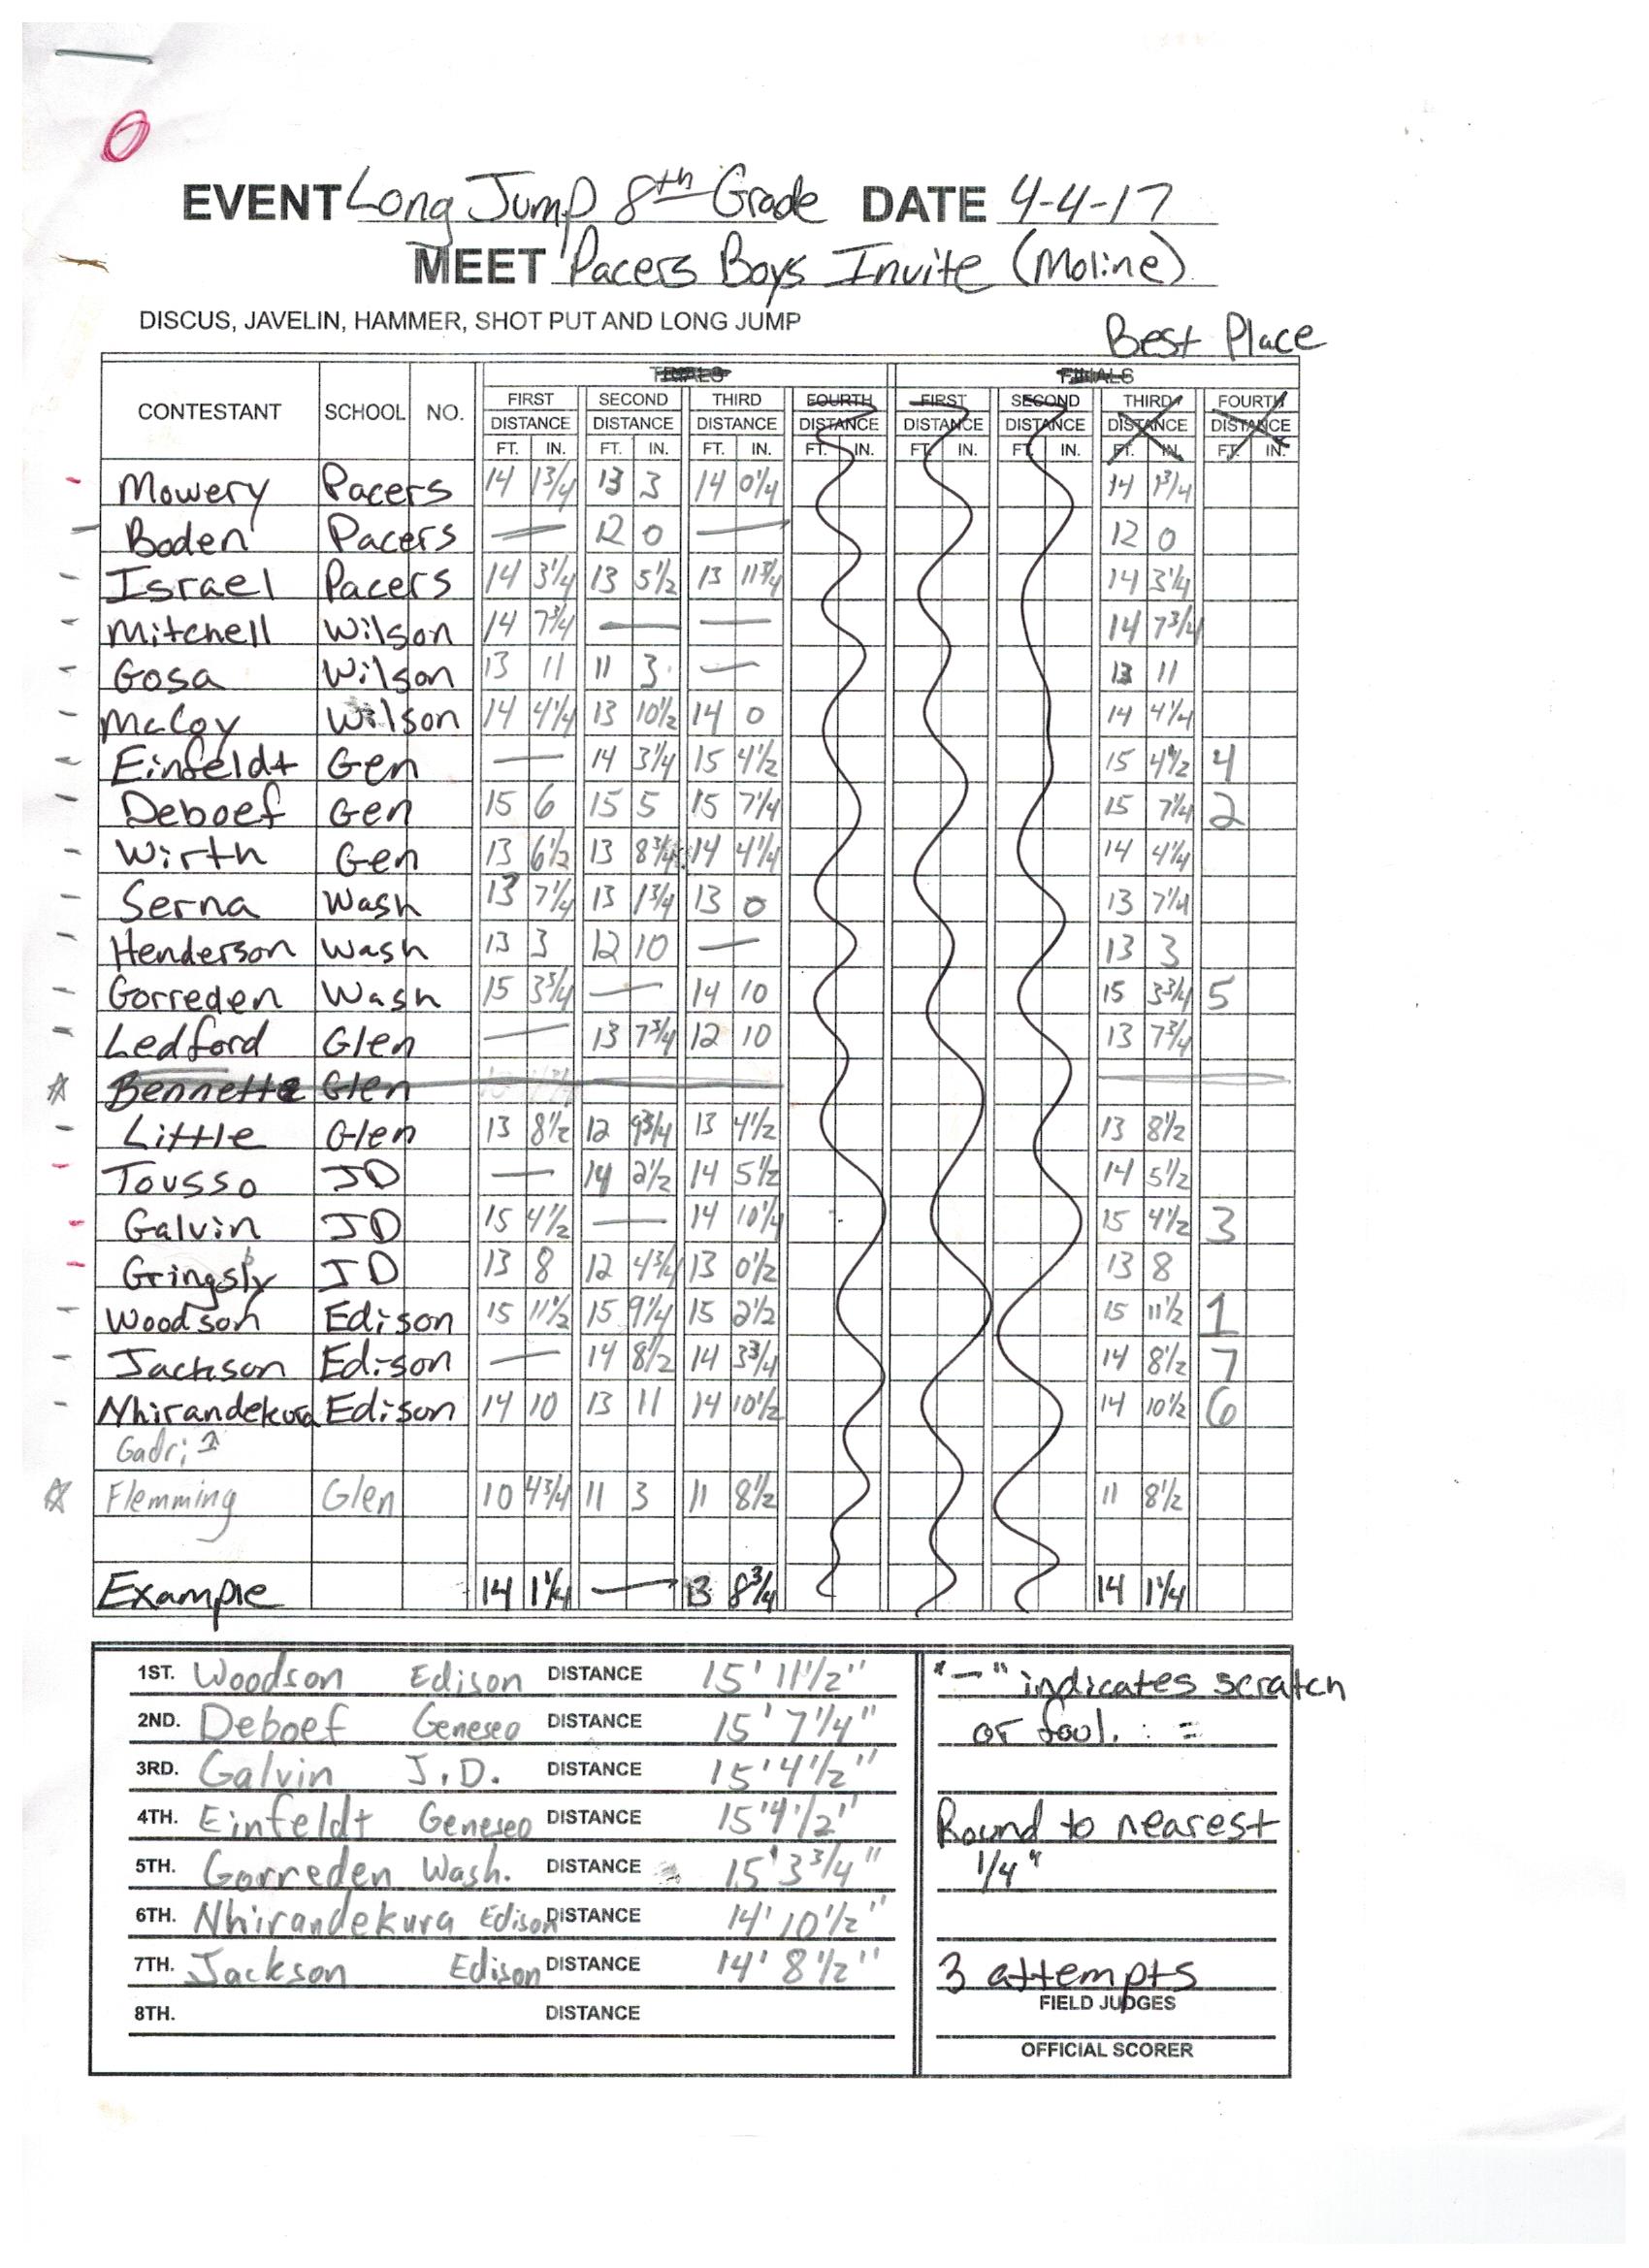 O
EVENT Long Jump 8th Grade DATE 4-4-17
MEET Pacers Boys Invite (Moline)
DISCUS, JAVELIN, HAMMER, SHOT PUT AND LONG JUMP
Best Place
FINALS
CONTESTANT SCHOOL NO. FIRST SECOND THIRD FOURTH FIRST SECOND THIRD FOURTH
DISTANCE DISTANCE DISTANCE DISTANCE DISTANCE DISTANCE DISTANCE DISTANCE
FT. IN. FT. IN. FT. IN. FT. IN. FT. IN. FT. IN. FT. IN. FT. IN.
- Mowery Pacers 14 1 3/4 13 3 14 0 1/4 14 1 3/4
- Boden Pacers — 12 0 — 12 0
- Israel Pacers 14 3 1/4 13 5 1/2 13 11 3/4 14 3 1/4
- Mitchell Wilson 14 7 3/4 — — 14 7 3/4
- Gosa Wilson 13 11 11 3 — 13 11
- McCoy Wilson 14 4 1/4 13 10 1/2 14 0 14 4 1/4
- Einfeldt Gen — 14 3 1/4 15 4 1/2 15 4 1/2 4
- Deboef Gen 15 6 15 5 15 7 1/4 15 7 1/4 2
- Wirth Gen 13 6 1/2 13 8 3/4 14 4 1/4 14 4 1/4
- Serna Wash 13 7 1/4 13 1 3/4 13 0 13 7 1/4
- Henderson Wash 13 3 12 10 — 13 3
- Gorreden Wash 15 3 3/4 — 14 10 15 3 3/4 5
- Ledford Glen — 13 7 3/4 12 10 13 7 3/4
☆ Bennett Glen
- Little Glen 13 8 1/2 12 9 3/4 13 4 1/2 13 8 1/2
- Tousso JD — 14 2 1/2 14 5 1/2 14 5 1/2
- Galvin JD 15 4 1/2 — 14 10 1/4 15 4 1/2 3
- Gringsly b JD 13 8 12 4 3/4 13 0 1/2 13 8
- Woodson Edison 15 11 1/2 15 9 1/4 15 2 1/2 15 11 1/2 1
- Jackson Edison — 14 8 1/2 14 3 3/4 14 8 1/2 7
- Nhirandekura Edison 14 10 13 11 14 10 1/2 14 10 1/2 6
Gadri ↑
☆ Flemming Glen 10 4 3/4 11 3 11 8 1/2 11 8 1/2
Example 14 1 1/4 — 13 8 3/4 14 1 1/4
1ST. Woodson Edison DISTANCE 15' 11 1/2"
2ND. Deboef Geneseo DISTANCE 15' 7 1/4"
3RD. Galvin J.D. DISTANCE 15' 4 1/2"
4TH. Einfeldt Geneseo DISTANCE 15' 4 1/2"
5TH. Gorreden Wash. DISTANCE 15' 3 3/4"
6TH. Nhirandekura Edison DISTANCE 14' 10 1/2"
7TH. Jackson Edison DISTANCE 14' 8 1/2"
8TH. DISTANCE
"—" indicates scratch
or foul.
Round to nearest
1/4"
3 attempts
FIELD JUDGES
OFFICIAL SCORER